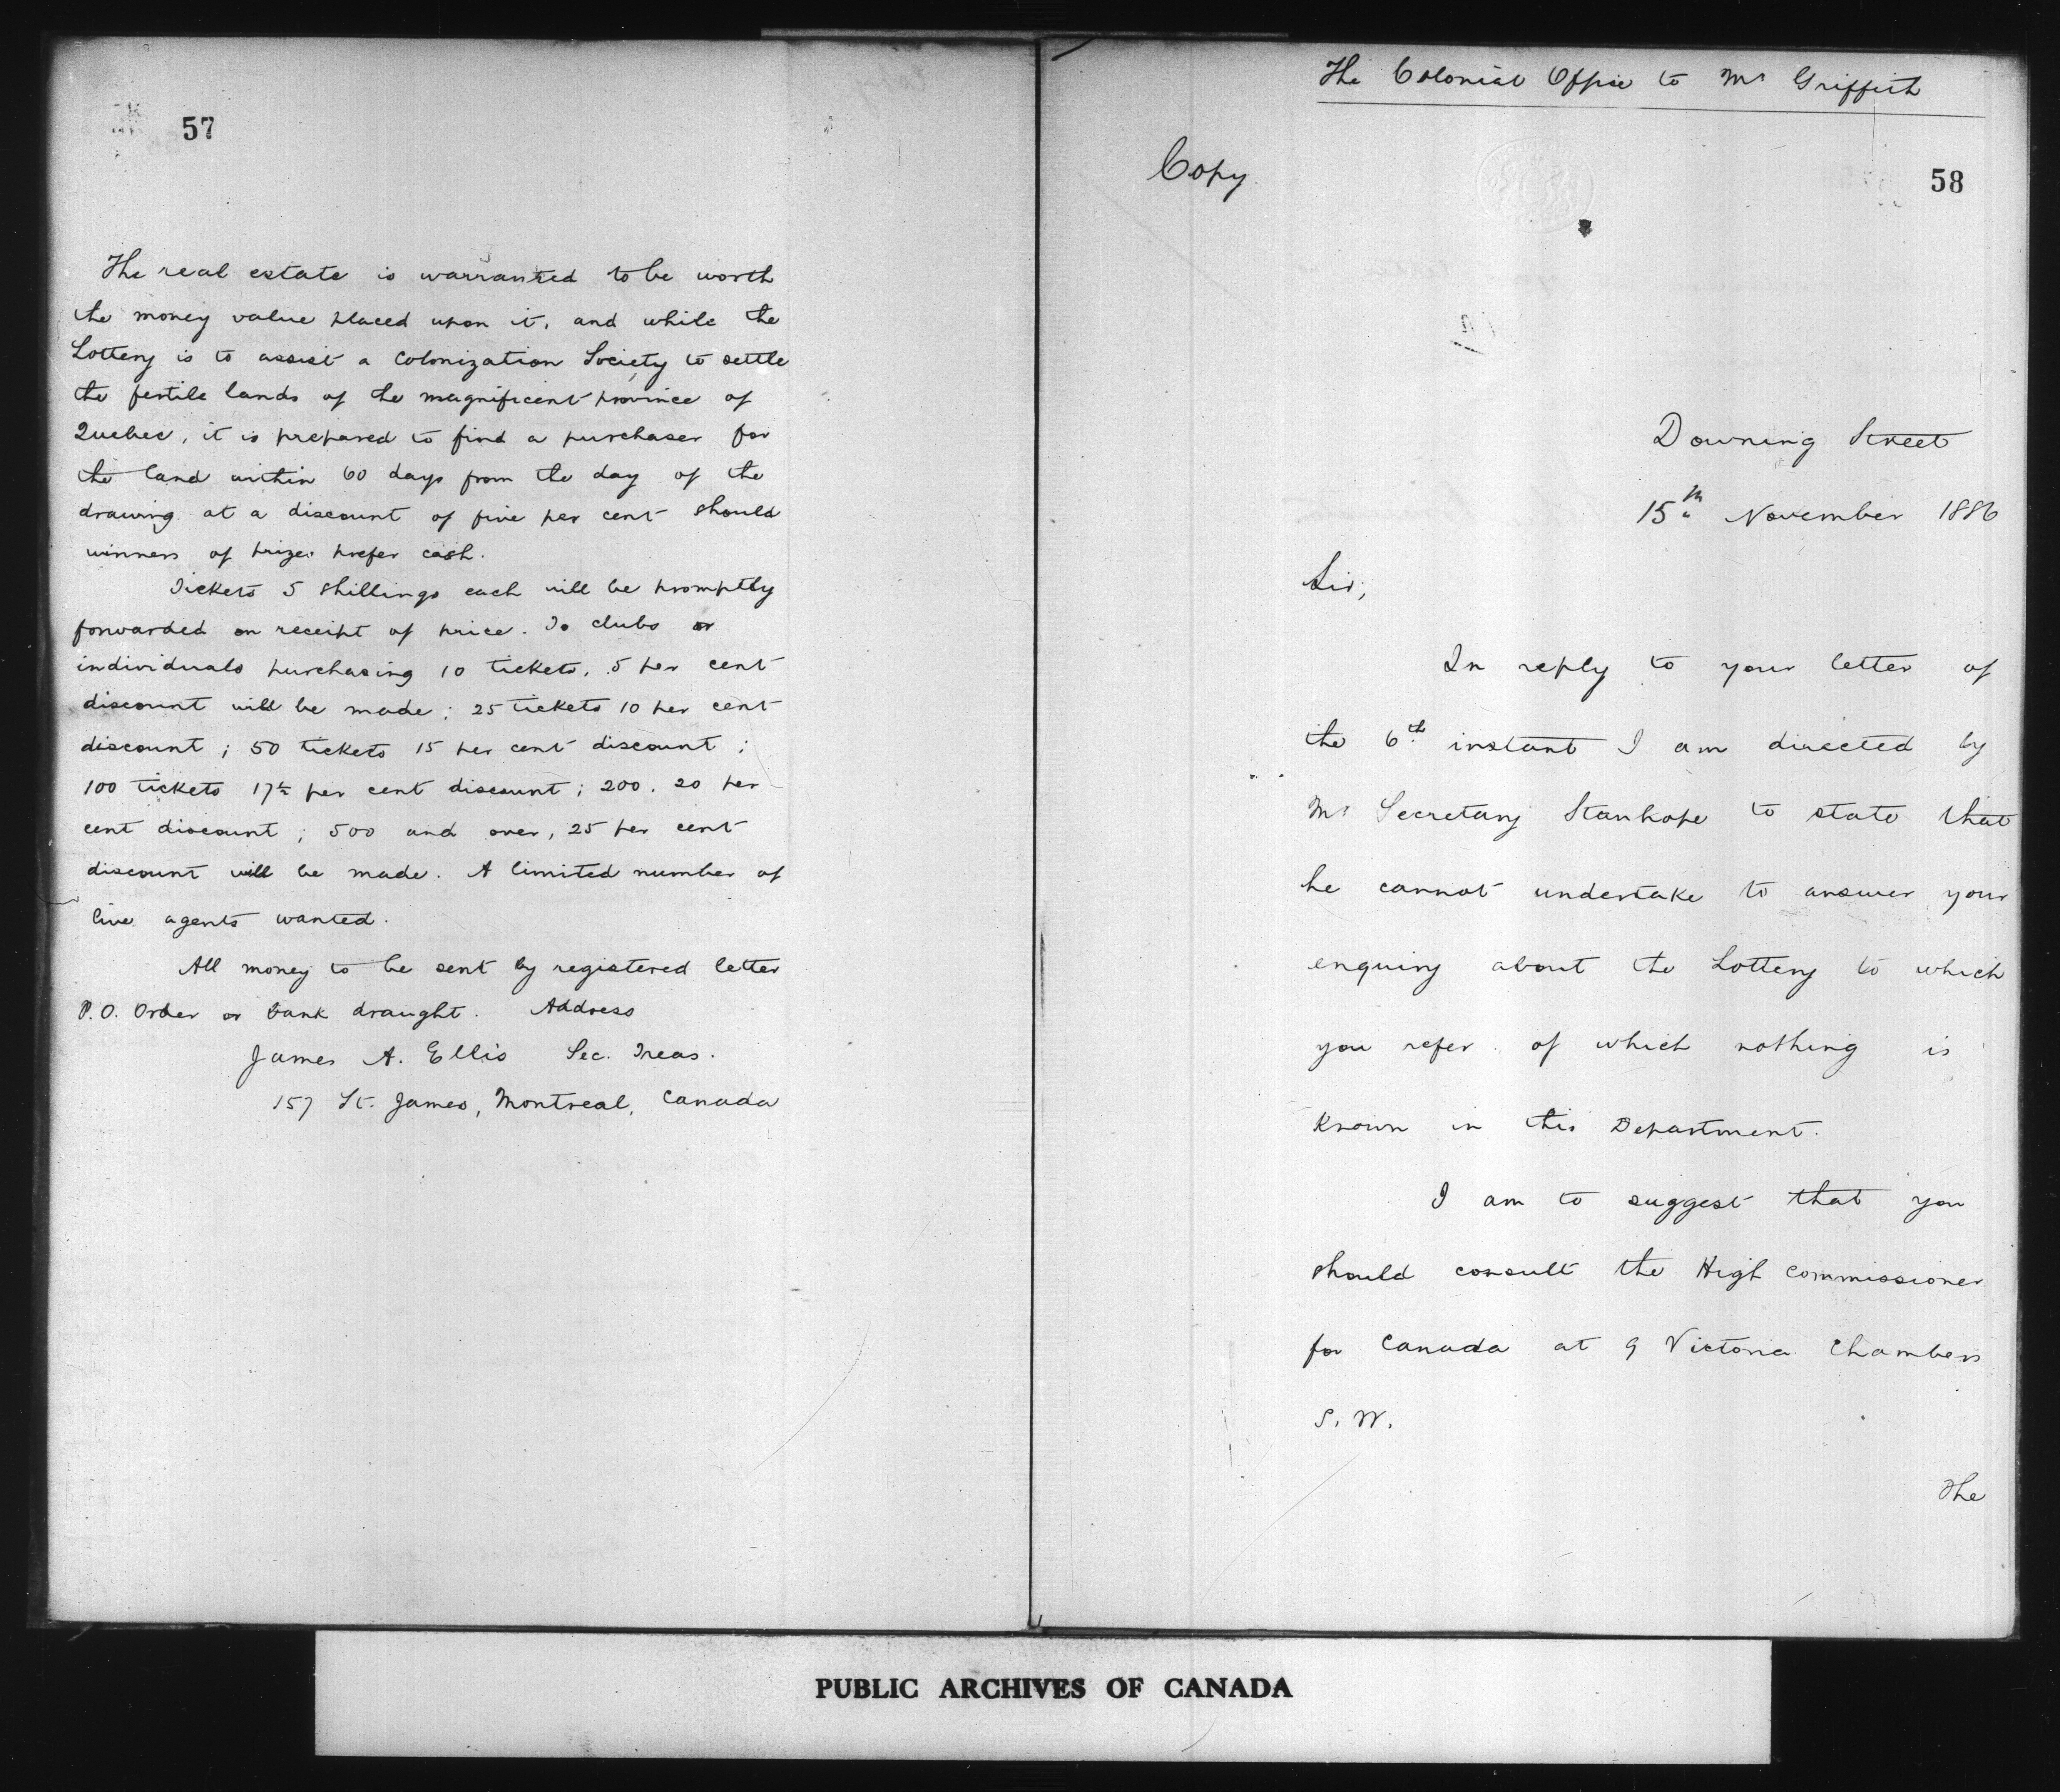 57
The real estate is warranted to be worth
the money value placed upon it, and while the
Lottery is to assist a Colonization Society to settle
the fertile lands of the magnificent province of
Quebec, it is prepared to find a purchaser for
the land within 60 days from the day of the
drawing at a discount of five per cent should
winners of prizes prefer cash.
Tickets 5 shillings each will be promptly
forwarded on receipt of price. To clubs or
individuals purchasing 10 tickets, 5 per cent
discount will be made; 25 tickets 10 per cent
discount; 50 tickets 15 per cent discount;
100 tickets 17½ per cent discount; 200. 20 per
cent discount; 500 and over, 25 per cent
discount will be made. A limited number of
live agents wanted.
All money to be sent by registered letter
P.O. Order or bank draught. Address
James A. Ellis Sec. Treas.
157 St. James, Montreal, Canada
The Colonial Office to Mr Griffith
Copy.
58
Downing Street
15th November 1886
Sir;
In reply to your letter of
the 6th instant I am directed by
Mr Secretary Stanhope to state that
he cannot undertake to answer your
enquiry about the Lottery to which
you refer. of which nothing is
known in this Department.
I am to suggest that you
should consult the High Commissioner
for Canada at 9 Victoria Chambers
S. W.
The
PUBLIC ARCHIVES OF CANADA